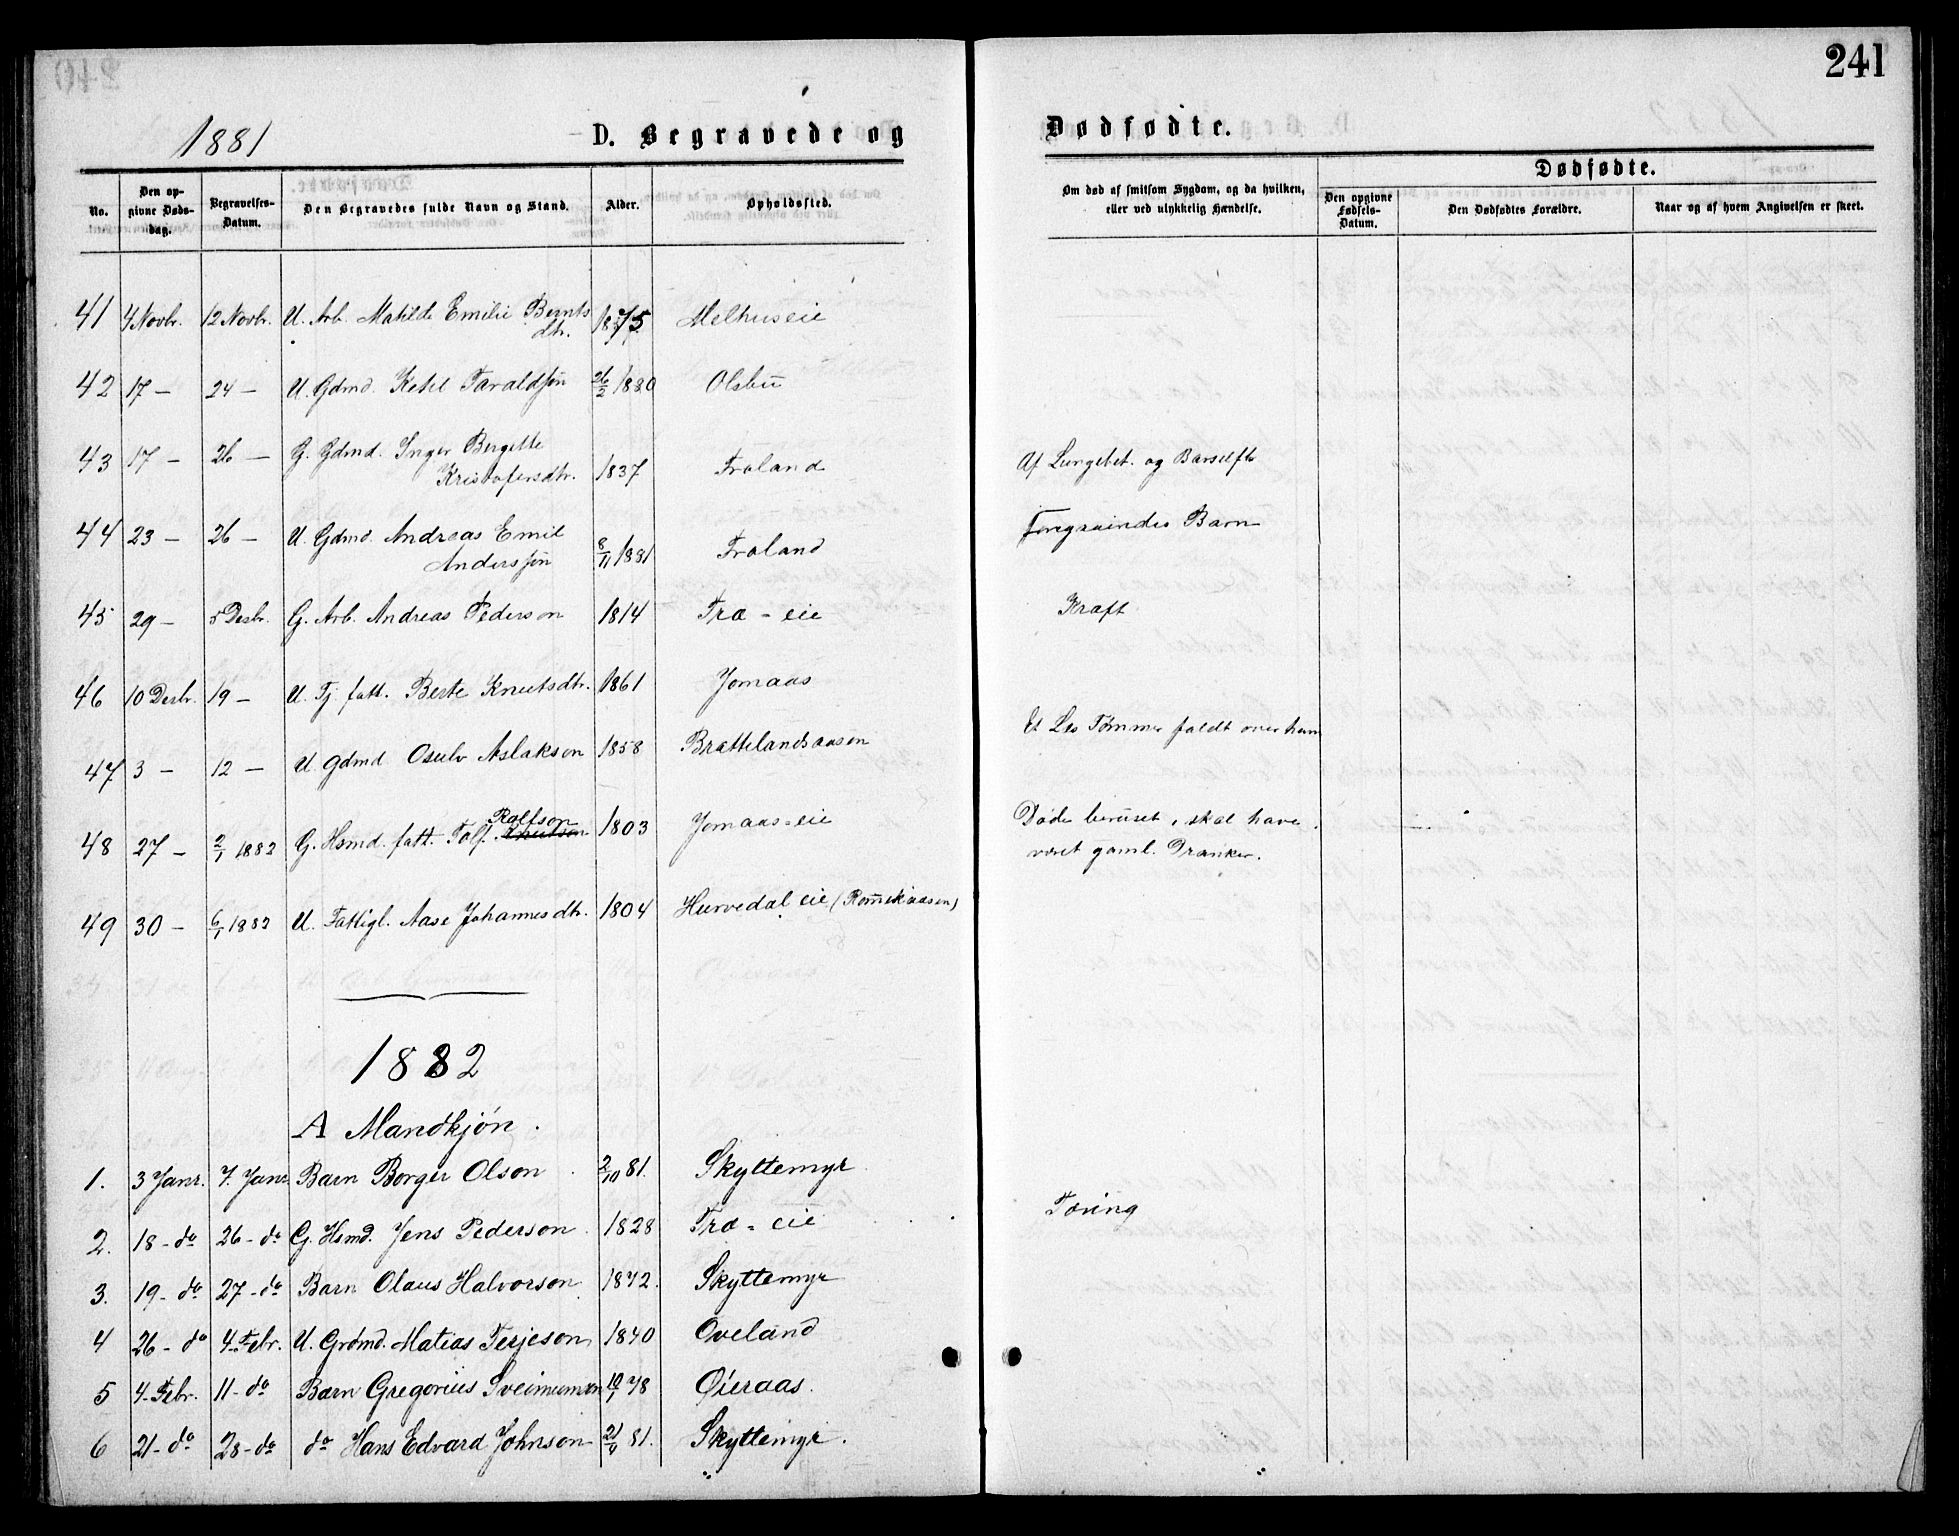 241
1881
D. Begravede og Dødfødte.
No. Den opgivne Dødsdag. Begravelses-Datum. Den Begravedes fulde Navn og Stand. Alder. Opholdssted. Om død af smitsom Sygdom, og da hvilken, eller ved ulykkelig Hændelse. Dødfødte. Den opgivne Fødsels-Datum. Den Dødfødtes Forældre. Naar og af hvem Angivelsen er skeet.
41 4 Novbr. 12 Novbr. U. Arb. Matilde Emilie Bernts 1875 Melhuseie
dtr.
42 17 – 24 – U. Gdmd. Ketil Taraldsøn 26/2 1880 Olsbu
43 17 – 26 – G. Gdmd. Inger Bergitte
Kristofersdtr. 1837 Froland Af Lungebet. og Barself
44 23 – 26 – U. Gdmd. Andreas Emil Foregaaendes Barn
Anderssøn 8/11 1881 Froland
45 29 – 5 Desbr. G. Arb. Andreas Pederson 1814 Fro - eie Kræft
46 10 Desbr. 19 – U. Tj. fatt. Berte Knutsdtr. 1861 Jomaas
47 3 – 12 – U. Gdmd Osulv Aslakson 1858 Brattelandsaasen Et Læs Tømmer faldt over ham
48 27 – 2/1 1882 G. Hsmd. fatt. Tolf. Knutson Rolfson 1803 Jomaas-eie Døde beruset, skal have
været gaml. Dranker.
49 30 – 6/1 1882 U. Fattigl. Aase Johannesdtr. 1804 Hurvedal eie
1882
A Mandkjøn.
1. 3 Janr. 7. Janr. Barn Borger Olson 2/10 81. Skyttemyr
2. 18 - do 26 - do G. Hsmd. Jens Pederson 1828 Fro - eie Tæring
3. 19 - do 27 - do Barn Olaus Halvorson 1872. Skyttemyr
4 26 - do 4. Febr. U. Grdmd. Matias Terjeson 1840 Oveland
5 4. Febr. 11 - do Barn Gregorius 10/1 78 Øieraas.
6 21 - do 28 - do do Hans Edvard Johnson 21/4 81. Skyttemyr.